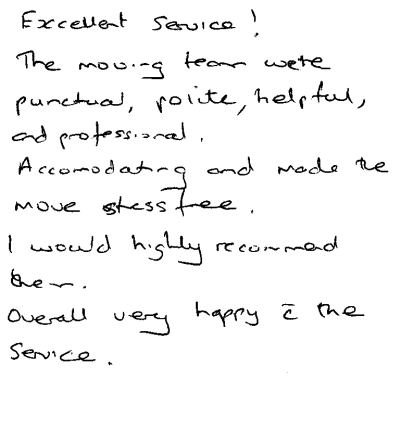 Excellent Service!
The moving team were
punctual, polite, helpful,
and professional.
Accomodating and made the
move stress free.
I would highly recommend
them.
Overall very happy c̄ the
Service.